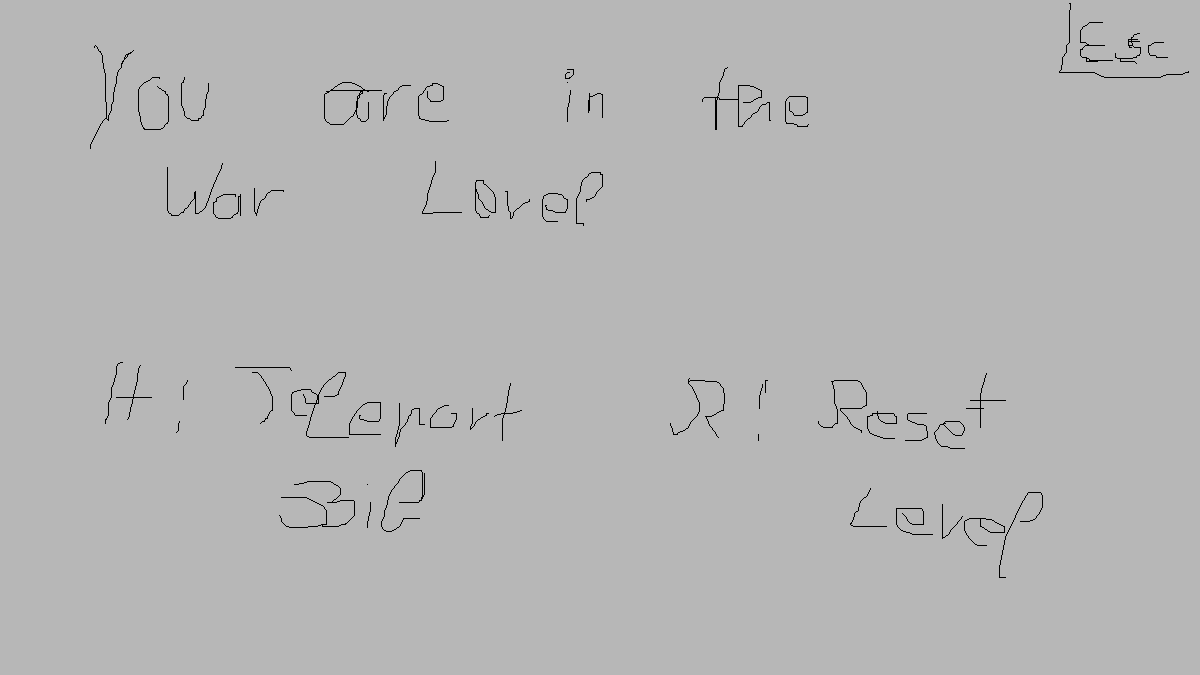 Esc
You are in the
War Level
H: Teleport
Bil
R: Reset
Level